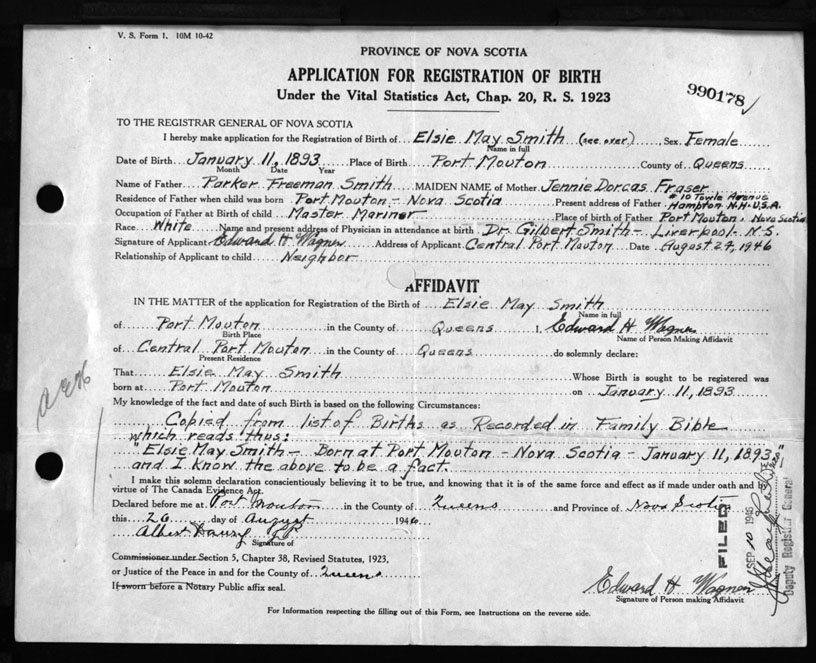 V. S. Form 1. 10M 10-42
PROVINCE OF NOVA SCOTIA
APPLICATION FOR REGISTRATION OF BIRTH
Under the Vital Statistics Act, Chap. 20, R. S. 1923
990178
TO THE REGISTRAR GENERAL OF NOVA SCOTIA
I hereby make application for the Registration of Birth of Elsie May Smith (see over) Sex Female
Name in full
Date of Birth January 11, 1893 Place of Birth Port Mouton County of Queens
Month Date Year
Name of Father Parker Freeman Smith MAIDEN NAME of Mother Jennie Dorcas Fraser
10 Towle Avenue
Residence of Father when child was born Port Mouton - Nova Scotia Present address of Father Hampton N.H. U.S.A.
Occupation of Father at Birth of child Master Mariner Place of birth of Father Port Mouton, Nova Scotia
Race White Name and present address of Physician in attendance at birth Dr. Gilbert Smith - Liverpool - N.S.
Signature of Applicant Edward H Wagner Address of Applicant Central Port Mouton Date August 29, 1946
Relationship of Applicant to child Neighbor
AFFIDAVIT
IN THE MATTER of the application for Registration of the Birth of Elsie May Smith
Name in full
of Port Mouton in the County of Queens I, Edward H Wagner
Birth Place Name of Person Making Affidavit
of Central Port Mouton in the County of Queens do solemnly declare:
Present Residence
That Elsie May Smith Whose Birth is sought to be registered was
born at Port Mouton on January 11, 1893
My knowledge of the fact and date of such Birth is based on the following Circumstances:
Copied from list of Births as Recorded in Family Bible
which reads thus:
"Elsie May Smith - Born at Port Mouton - Nova Scotia - January 11, 1893"
and I know the above to be a fact.
I make this solemn declaration conscientiously believing it to be true, and knowing that it is of the same force and effect as if made under oath and by
virtue of The Canada Evidence Act.
Declared before me at Port Mouton in the County of Queens and Province of Nova Scotia
this 26 day of August 1946
Albert J.P.
Signature of
Commissioner under Section 5, Chapter 38, Revised Statutes, 1923,
or Justice of the Peace in and for the County of Queens
If sworn before a Notary Public affix seal.
Edward H Wagner
Signature of Person making Affidavit
For Information respecting the filling out of this Form, see Instructions on the reverse side.
FILED
SEP 10
Deputy Registrar General